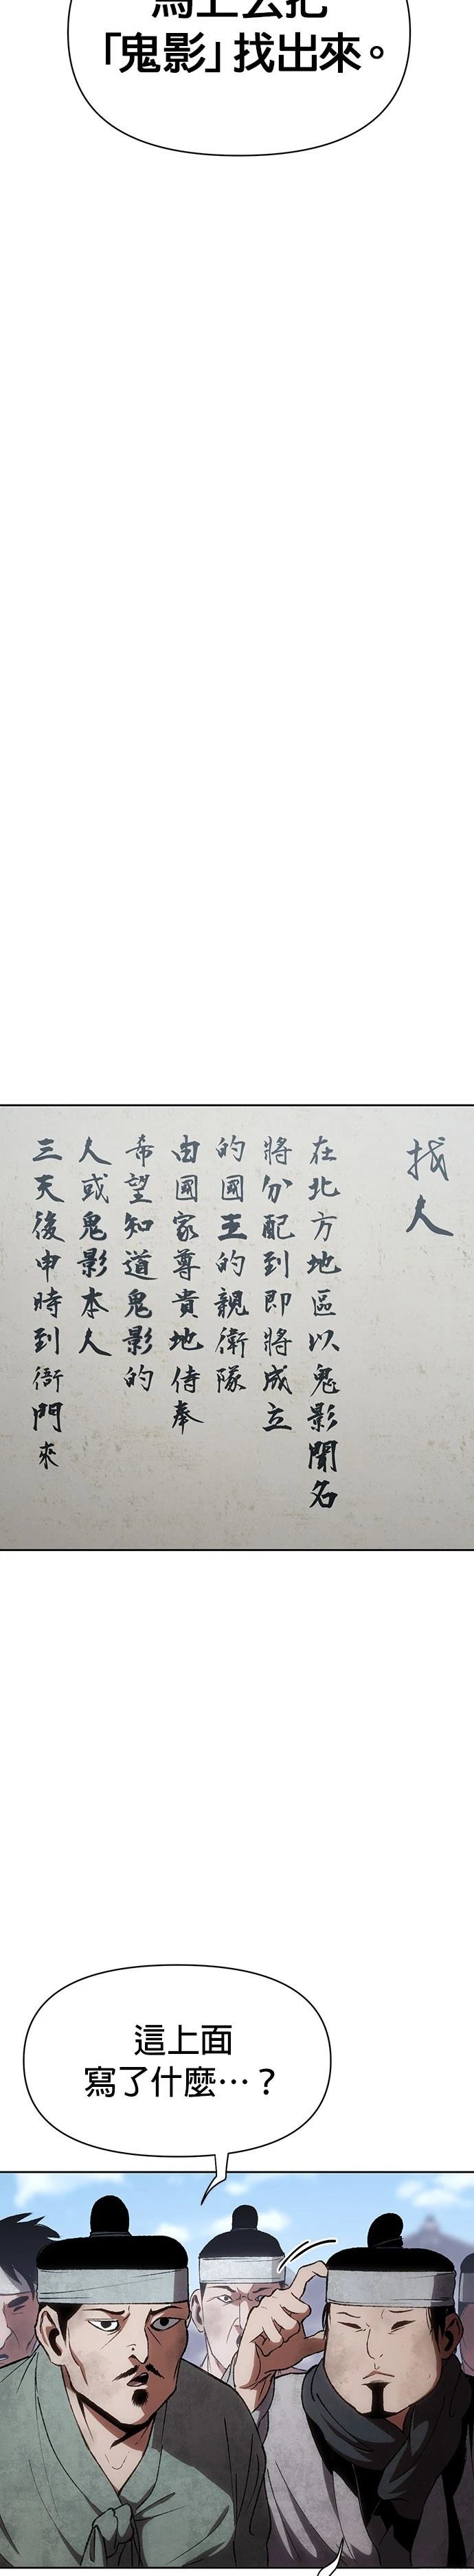 馬上去把
「鬼影」找出來。
找人
在北方地區以鬼影聞名
將分配到即將成立
的國王的親衛隊
由國家尊貴地侍奉
希望知道鬼影的
人或鬼影本人
三天後申時到衙門來
這上面
寫了什麼…？